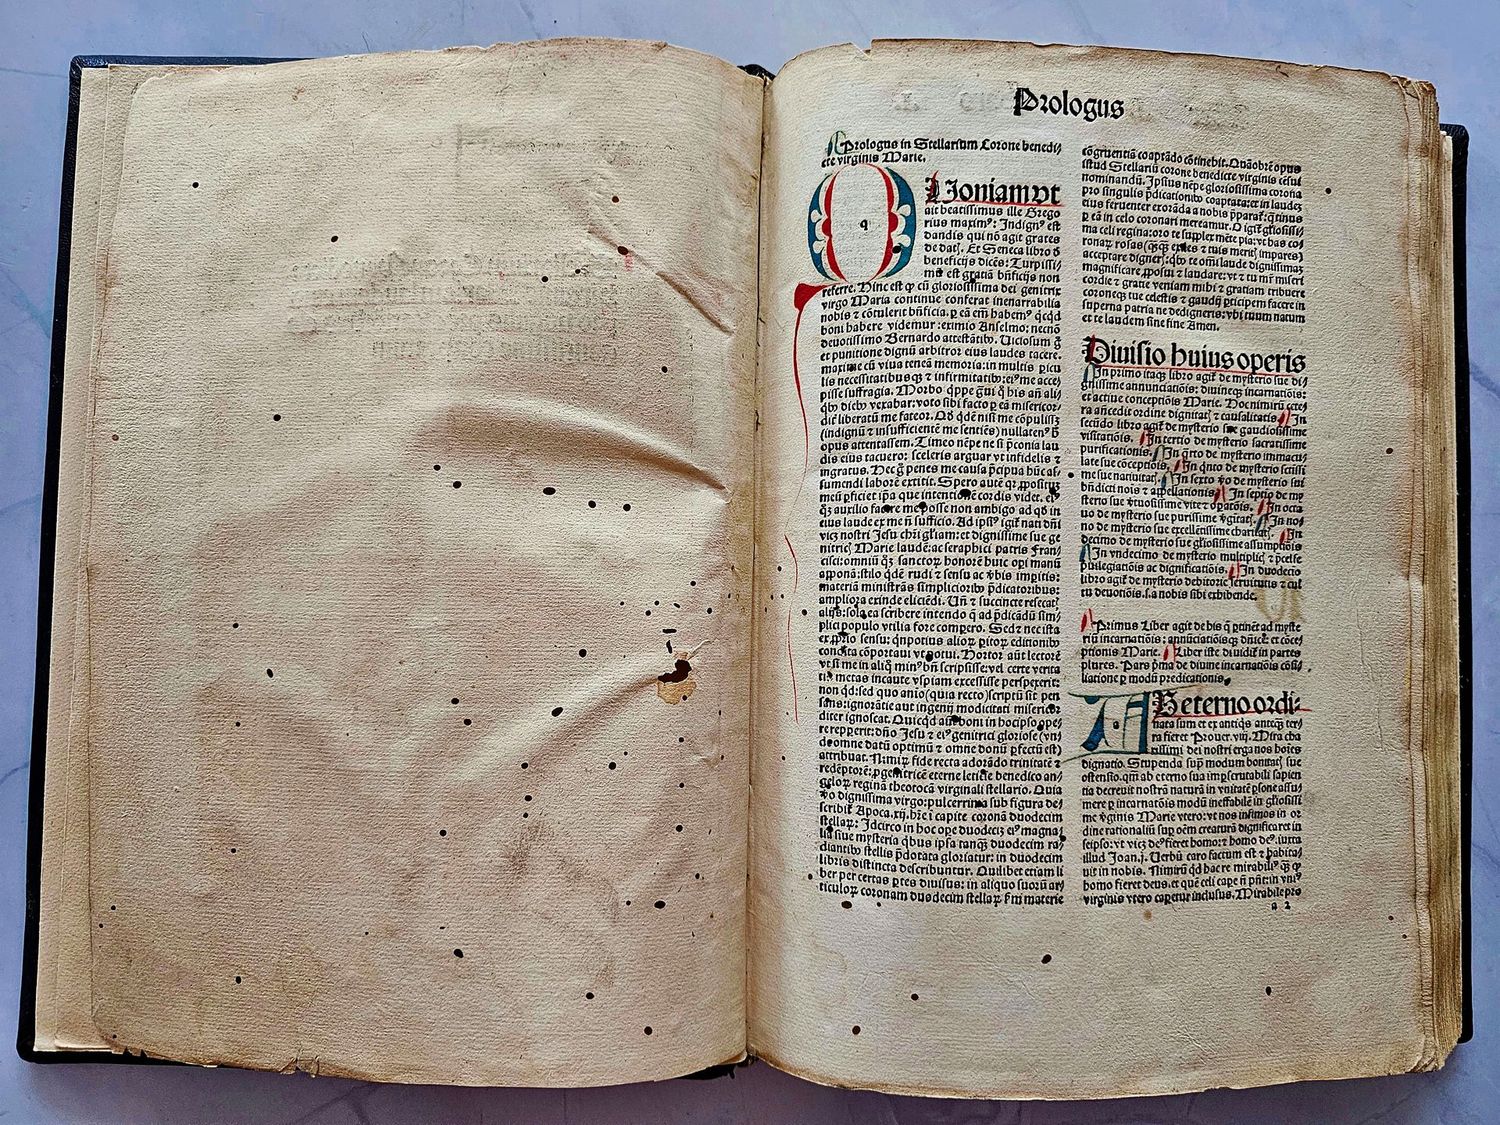 Prologus
Prologus in Stellarium Corone benedi/
cte virginis Marie.
QUoniam vt
ait beatissimus ille Grego
rius maximꝰ: Indignꝰ est
dandis qui nō agit grates
de datꝭ. Et Seneca libro ð
beneficijs dicēs: Turpissi/
mū est gratiā bn̄ficijs non
referre. Hinc est ꝙ cū gloriosissima dei genitrix
virgo Maria continue conferat inenarrabilia
nobis ⁊ cōtulerit bn̄ficia. ꝑ eā em̄ habemꝰ qcqd
boni habere videmur: eximio Anselmo: necnō
deuotissimo Bernardo attestātibꝰ. Uiciosum
et punitione dignū arbitror eius laudes tacere.
maxime cū viua teneā memoria: in multis
lis necessitatibusqꝫ ⁊ infirmitatibꝰ: eiꝰ me acce/
pisse suffragia. Morbo
diebꝰ vexabar: voto sibi facto ꝑ eā misericor/
diter liberatū me fateor.
(indignū ⁊ insufficientē me sentiēs) nullatenꝰ
opus attentassem. Timeo nēpe ne si p̄conia lau
dis eius tacuero: sceleris arguar vt infidelis ⁊
ingratus. Nec penes me causa p̄cipua hūc as/
sumendi laborē extitit. Spero autē qꝛ propositū
meū ꝑficiet ipa que intentionē cordis videt.
qꝫ auxilio facere me posse non ambigo ad qd̄ in
eius laude ex me n̄ sufficio. Ad ipsiꝰ igit nati dn̄i
nostri Jesu chri gliam: et dignissime sue ge
nitricꝭ Marie laudē: ac seraphici patris Fran/
cisci: omniū qꝫ sanctoꝝ honorē huic opi manū
apponā: stilo qdē rudi ⁊ sensu ac v̄bis impitis:
materiā ministrās simplicioribꝰ p̄dicatoribus:
ampliora exinde eliciēdi. Un̄ ⁊ succincte resecatꝭ
alijs: sola ea scribere intendo q̄ ad p̄dicādū sim/
plici populo vtilia fore compero. Sed ⁊ nec ista
ex proprio sensu:
condita cōportaui vt potui. Hortor aūt lectorē
vt si me in aliq̄ minꝰ bn̄ scripsisse: vel certe verita
tꝭ metas incaute vspiam excessisse perspexerit:
non qd̄: sed quo anio (quia recto) scriptū sit pen
sans: ignorātie aut ingenij modicitati misericor
diter ignoscat. Quicqd aūt boni in hoc ipso ope
repperit: dn̄o Jesu ⁊ eiꝰ genitrici gloriose (vn̄
de omne datū optimū ⁊ omne donū ꝑfectū est)
attribuat. fide recta adorādo trinitatē ⁊
redēptorē: progenitricē eterne letitie benedico an/
geloꝝ reginā theotocā virginali stellario. Quia
v̄o dignissima virgo: pulcerrima sub figura de/
scribit Apoca.xij. hr̄e ī capite coronā duodecim
stellaꝝ: Idcirco in hoc ope duodecī eiꝰ magna/
lia siue mysteria qbus ipsa tanqꝫ duodecim ra/
diantibꝰ stellis p̄dotata gloriatur: in duodecim
libris distincta describuntur. Quilibet etiam li
ber per certas ꝑtes diuisus: in aliquo suorū ar/
ticuloꝝ coronam duodecim stellaꝝ f̄m materie
cōgruentiā coaptādo cōtinebit. Quāobrē opus
istud Stellariū corone benedicte virginis cēsui
nominandū. Ipsius nēpe gloriosissima corona
pro singulis p̄dicationibꝰ coaptata: et in laudes
eius feruenter exorāda a nobis p̄parat: qtinus
ꝑ eā in celo coronari mereamur. O igit gliosissi/
ma celi regina: oro te supplex mēte pia: vt has co/
ronaꝝ rosas (qꝫqꝫ exiles ⁊ tuis meritꝭ impares)
acceptare digneris: qbꝰ te om̄i laude dignissimaꝫ
magnificare proposui ⁊ laudare: vt ⁊ tu mr̄ miseri
cordie ⁊ gratie veniam mihi ⁊ gratiam tribuere
coroneqꝫ tue celestis ⁊ gaudij ꝑticipem facere in
superna patria ne dedigneris: vbi tuum natum
et te laudem sine fine Amen.
Diuisio huius operis
In primo itaqꝫ libro agit de mysterio sue di/
gnissime annunciatiōis: diuineqꝫ incarnatiōis:
et actiue conceptiōis Marie. Hoc nimirū cete/
ra an̄cedit ordine dignitatꝭ ⁊ causalitatꝭ. In
secūdo libro agit de mysterio sue gaudiosissime
visitatiōis. In tertio de mysterio sacratissime
purificationis. In q̄rto de mysterio immacu/
late sue cōceptiōis. In qnto de mysterio scissi
me sue natiuitatꝭ. In sexto v̄o de mysterio sui
bn̄dicti nois ⁊ appellationis. In septīo de my
sterio sue v̄tuosissime vite ⁊ oꝑatōis. In octa
uo de mysterio sue purissime v̄gitatꝭ. In no/
no de mysterio sue excellētissime charitatꝭ. In
decimo de mysterio sue gliosissime assumptiōis
In vndecimo de mysterio multiplicꝭ ⁊ p̄celse
puilegiatiōis ac dignificatiōis. In duodecīo
libro agit de mysterio debitorie seruitutis ⁊ cul
tu deuotiōis. s. a nobis sibi exhibende.
Primus Liber agit de his q̄ ꝑtinēt ad myste
riū incarnatiōis: annūciatiōisqꝫ dn̄ice: et cōce/
ptionis Marie. Liber iste diuidit in partes
plures. Pars p̄ma de diuine incarnatiōis cōsi/
liatione ꝑ modū predicationis.
AB eterno ordi/
nata sum et ex antiqs anteqꝫ ter/
ra fieret Prouer. viij. Mira cha
rissimi dei nostri erga nos hoīes
dignatio. Stupenda sup̄ modum bonitatꝭ sue
ostensio. qm̄ ab eterno sua imperscrutabili sapien
tia decreuit nostrā naturā in vnitatē psone assu/
mere ꝑ incarnatōis modū ineffabilē in gliosissi
me v̄ginis Marie vtero: vt nos infimos in or
dine rationaliū sup̄ oēm creaturā dignificaret in
seipso: vt deꝰ fieret homo: ⁊ homo deꝰ: iuxta
illud Joan. j. Uerbū caro factum est ⁊ habita/
uit in nobis. Nimirū qd̄ hac re mirabiliꝰ qꝫ ꝙ
homo fieret deus. et quē celi cape n̄ pn̄t: in vniꝰ
virginis vtero capetur inclusus. Mirabile pro
a 2